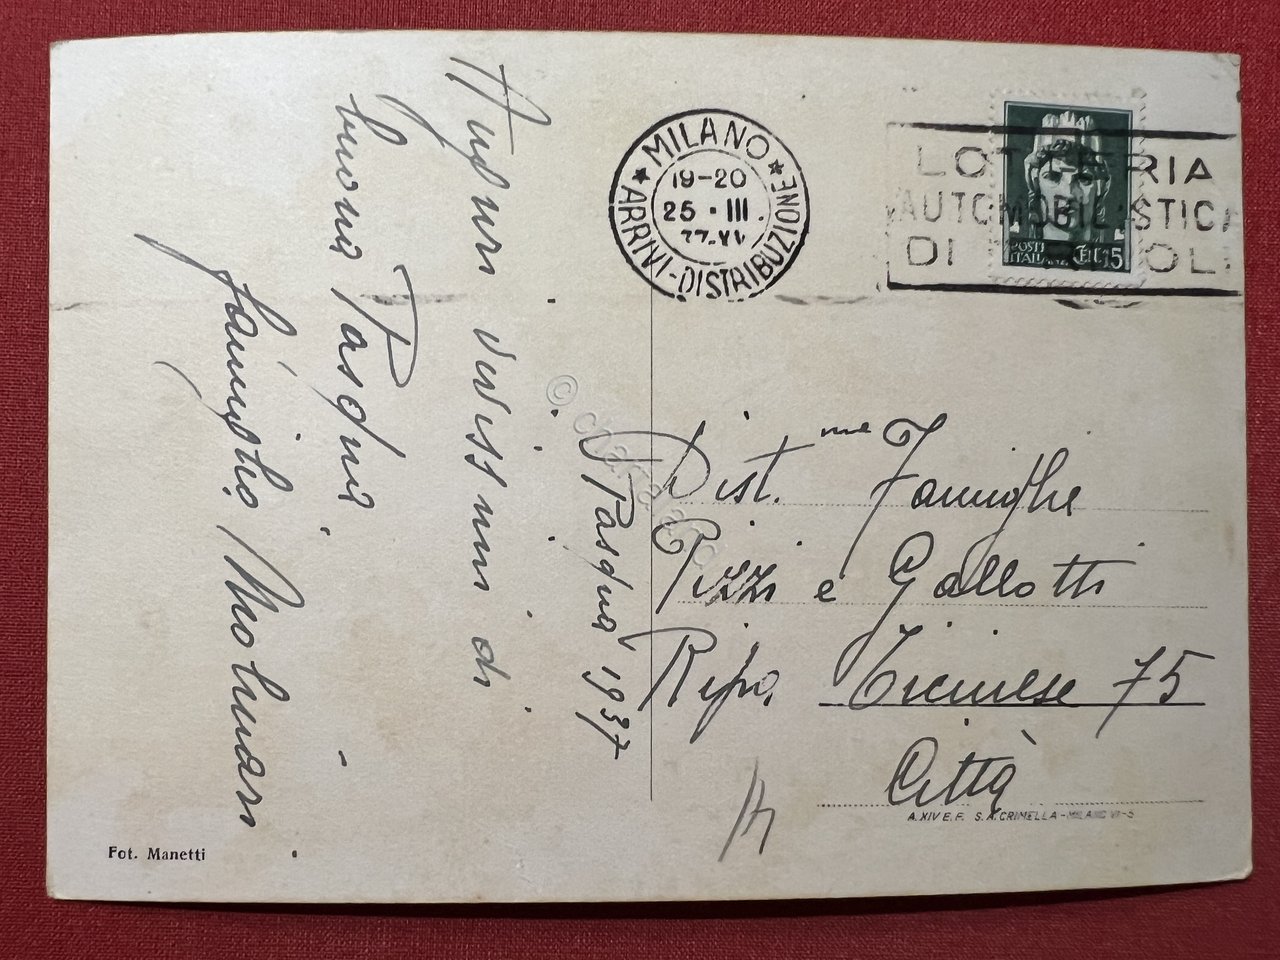 Auguri vivissimi di
buona Pasqua
famiglia Molinari
Pasqua 1937
MILANO
19-20
25·III.
37-XV
ARRIVI-DISTRIBUZIONE
LOTTERIA
AUTOMOBILISTICA
DI TRIPOLI
POSTE
ITALIANE CENT.15
Dist.me Famiglie
Pizzi e Gallotti
Ripa Ticinese 75
Città
A. XIV E.F. S.A. CRIMELLA - MILANO VI-5
Fot. Manetti